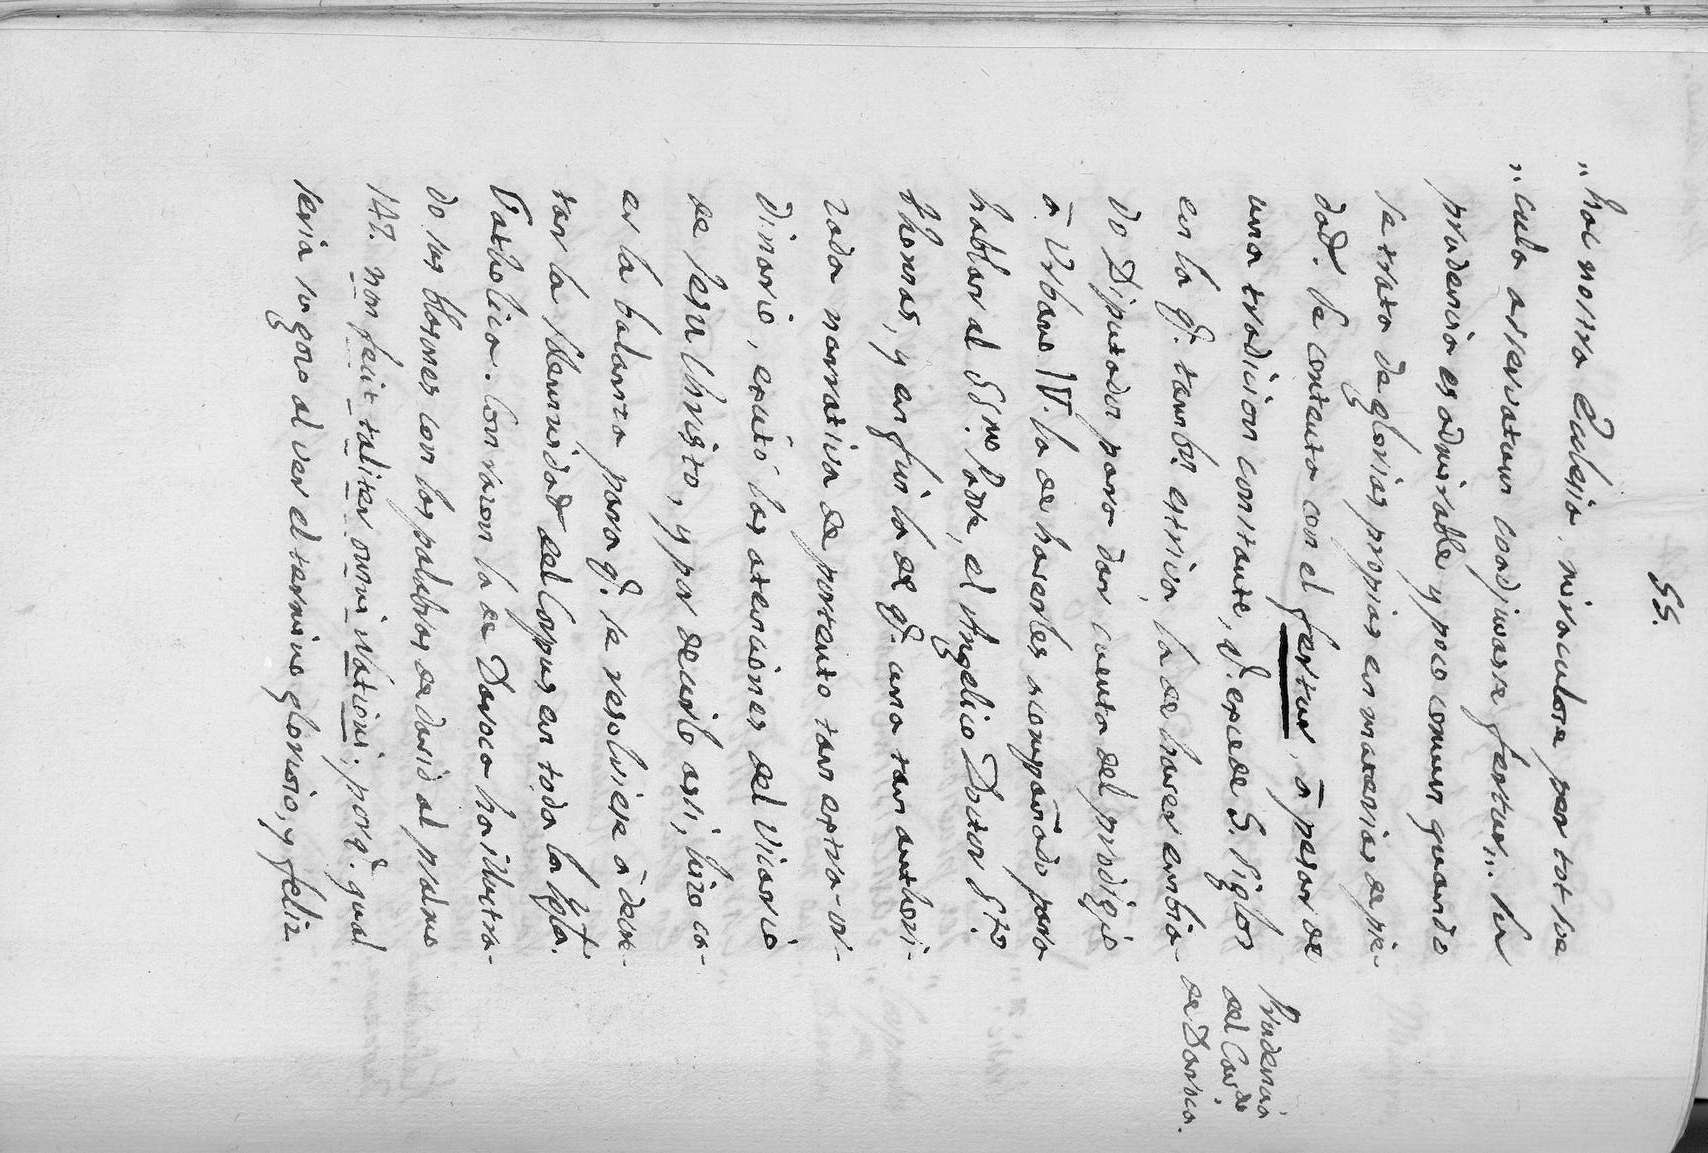 55.
"hac nostra Eclesia, miracula per tot loca
"culo asservatum coadjuvasse fertur": la
prudencia es admirable y poco comun quando
se trata de glorias propias en materias de pie-
dad. Se contenta con el fertur, â pesar de
una tradicion constante, q.e excede 5. siglos
en la q.e tambn. estriva la de haver embia-
do Diputados para dar cuenta del prodigio
â Urbano IV. la de haverles acompañado para
hablar al SS.mo Padre, el Angelico Doctor S.to
Thomas, y en fin la de q.e una tan authori-
zada narrativa de portento tan extra-or-
dinario, excitó las atenciones del Vicario
de Jesu Christo, y por decirlo asi, hizo ca-
er la balanza para q.e se resolviese â decre-
tar la solemnidad del Corpus en toda la Ygla.
Catholica. Con razon la de Daroca ha illustra-
do sus blasones con las palabras de David al psalmo
147. non fecit taliter omni Nationi; porq.e qual
seria su gozo al ver el termino glorioso, y feliz
Prudencia
del Cav.do
de Daroca.